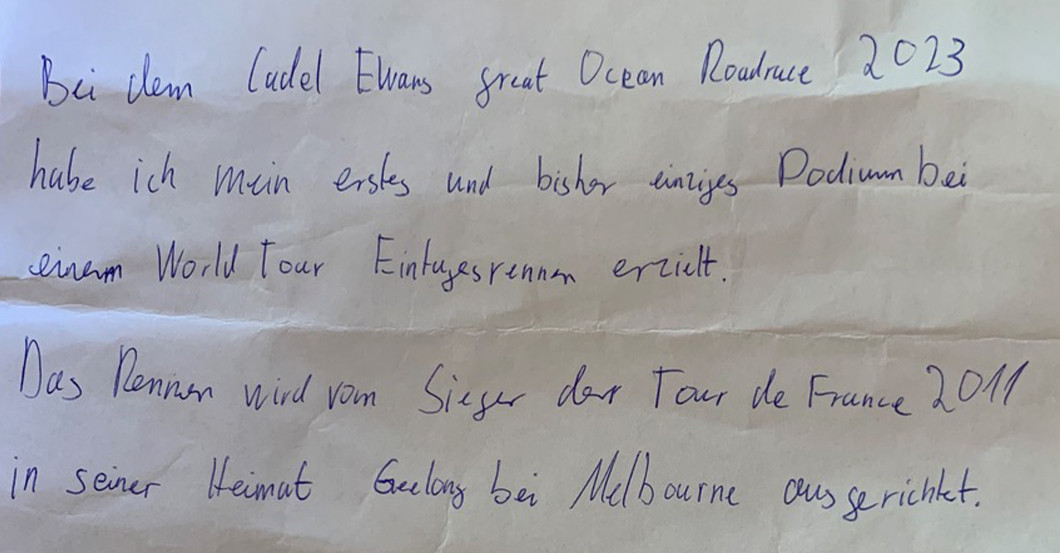 Bei dem Cadel Ewans great Ocean Roadrace 2023
habe ich mein erstes und bisher einziges Podium bei
einem World Tour Eintagesrennen erzielt.
Das Rennen wird vom Sieger der Tour de France 2011
in seiner Heimat Geelong bei Melbourne ausgerichtet.